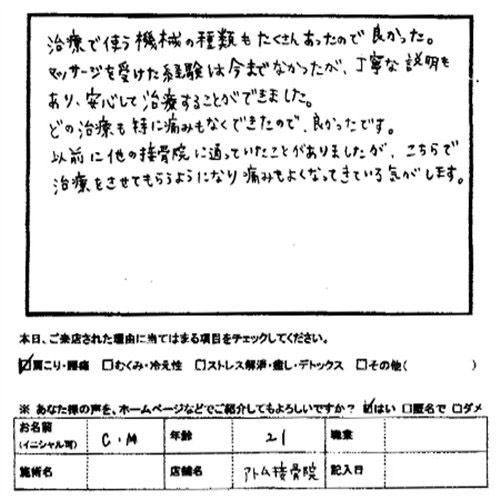 治療で使う機械の種類もたくさんあったので良かった。
マッサージを受けた経験は今までなかったが、丁寧な説明も
あり、安心して治療することができました。
どの治療も特に痛みもなくできたので、良かったです。
以前に他の接骨院に通っていたことがありましたが、こちらで
治療をさせてもらうようになり痛みもよくなってきている気がします。
本日、ご来店された理由に当てはまる項目をチェックしてください。
☑肩こり・腰痛 □むくみ・冷え性 □ストレス解消・癒し・デトックス □その他( )
※ あなた様の声を、ホームページなどでご紹介してもよろしいですか? ☑はい □匿名で □ダメ
お名前 (イニシャル可) C.M 年齢 21 職業
施術名 店舗名 アトム接骨院 記入日